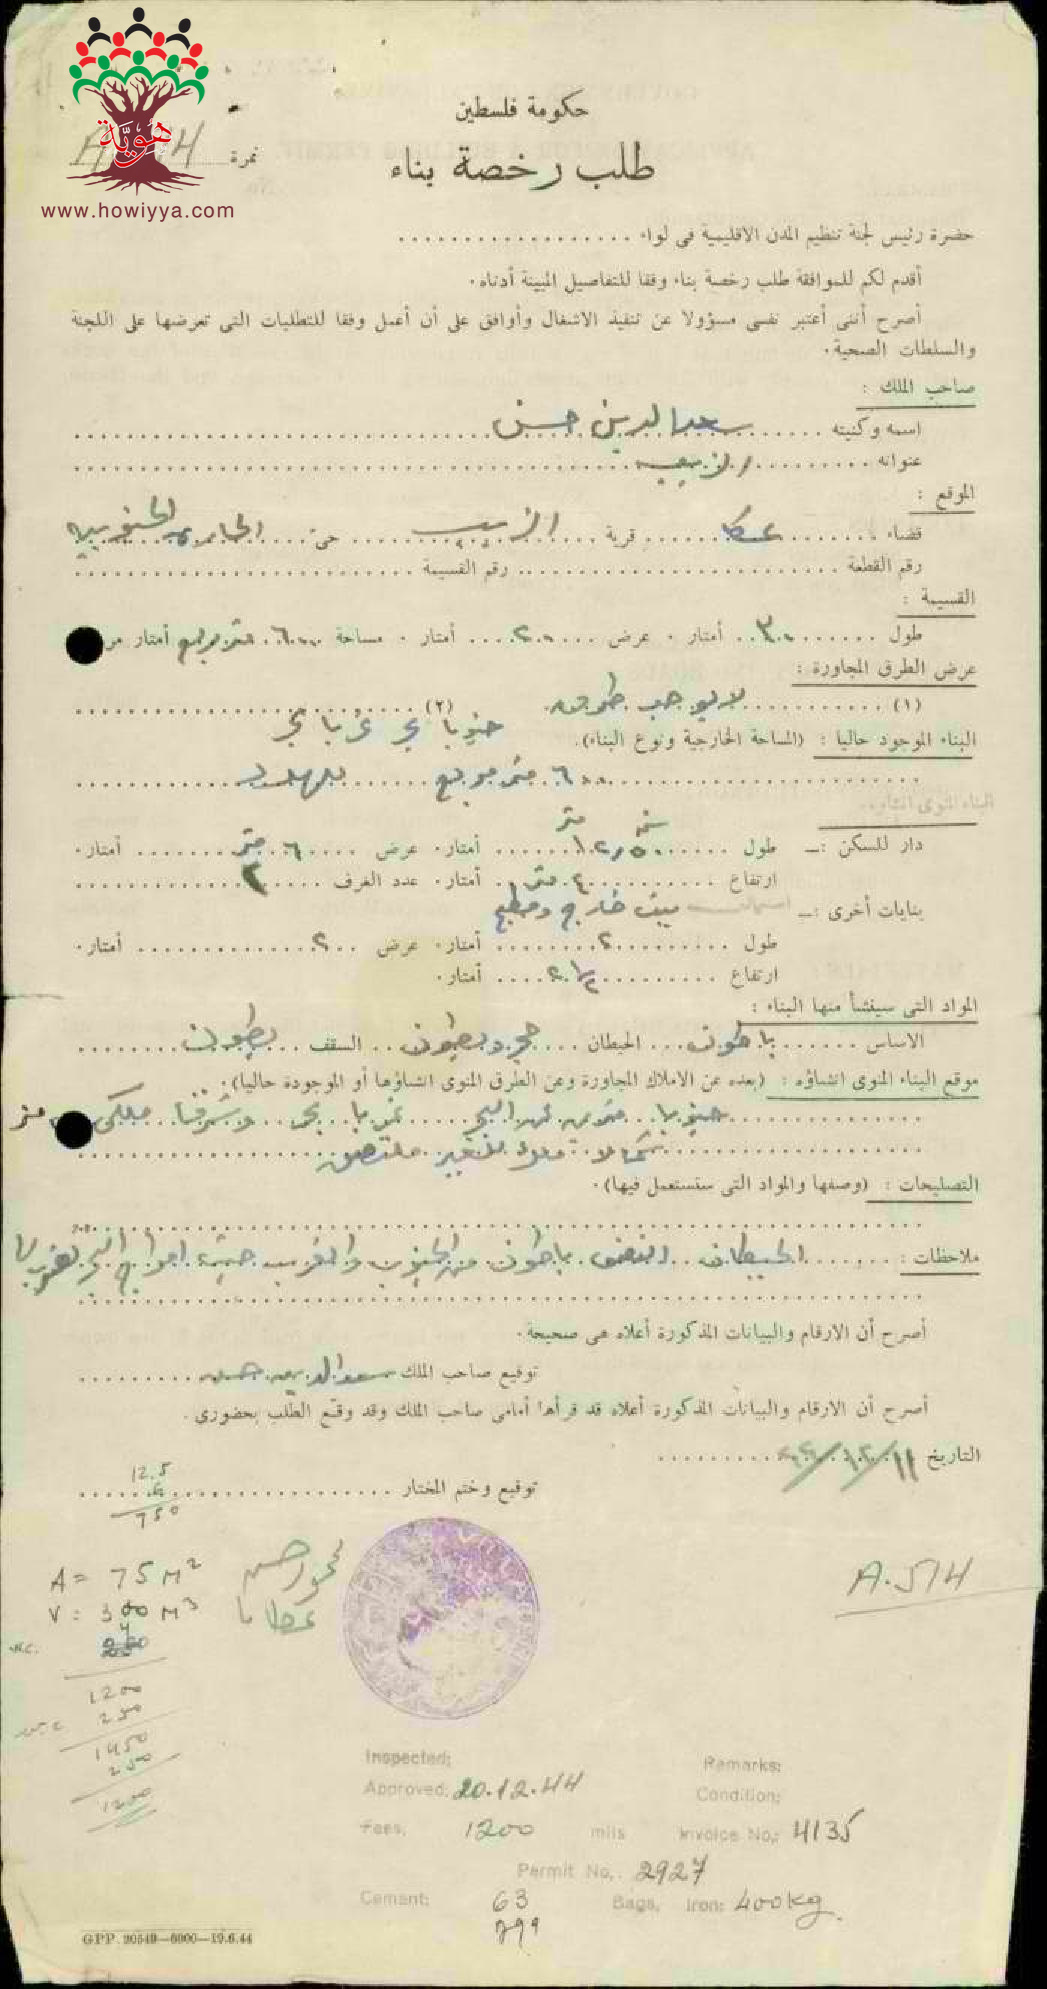 هوية
www.howiyya.com
حكومة فلسطين
نمرة
طلب رخصة بناء
حضرة رئيس لجنة تنظيم المدن الاقليمية في لواء
أقدم لكم للموافقة طلب رخصة بناء وفقا للتفاصيل المبينة أدناه.
أصرح أننى أعتبر نفسى مسؤولا عن تنفيذ الاشغال وأوافق على أن أعمل وفقا للتطلبات التى تعرضها على اللجنة
والسلطات الصحية.
صاحب الملك :
اسمه وكنيته سعد الدين حسن
عنوانه الزيب
الموقع :
قضاء عكا قرية الزيب حى الحارة الجنوبية
رقم القطعة رقم القسيمة
القسيمة :
طول ٣٠ أمتار . عرض ٢٠ أمتار . مساحة ٦٠٠ متر مربع أمتار مر
عرض الطرق المجاورة :
(١) لا يوجب طرق (٢)
جنوبا بحر غربا بحر
البناء الموجود حاليا : (المساحة الخارجية ونوع البناء).
٦٠٠ متر مربع
البناء المنوى انشاؤه
متر
دار للسكن :ــ طول ١٢٫٥٠ أمتار. عرض ٦ متر أمتار.
ارتفاع ٤ متر أمتار. عدد الغرف ٣
بنايات أخرى :ــ بيت خارج ومطبخ
طول ٢ أمتار. عرض ٢ أمتار.
ارتفاع ٢ ١/٢ أمتار.
المواد التى سينشأ منها البناء :
الاساس باطون الحيطان حجر وبطون السقف بطون
موقع البناء المنوى انشاؤه : (بعده عن الاملاك المجاورة وعن الطرق المنوى انشاؤها أو الموجودة حاليا).
جنوبا عن البحر غربا بحر وشرقا ملكى متر
شمالا ملك للغير ملتصق
التصليحات : (وصفها والمواد التى ستستعمل فيها).
ملاحظات : الحيطان باطون من الجنوب والغرب امواج البحر
أصرح أن الارقام والبيانات المذكورة أعلاه هى صحيحة.
توقيع صاحب الملك سعد الدين حسن
أصرح أن الارقام والبيانات المذكورة أعلاه قد قرأها أمامى صاحب الملك وقد وقع الطلب بحضورى.
التاريخ ١١/١٢/٤٤
توقيع وختم المختار
12.5
6
750
A = 75 M²
V = 300 M³
4
W.C.
1200
250
1450
250
1200
محمود حسن
عطايا
A.514
Inspected: Remarks:
Approved: 20.12.44 Condition:
Fees, 1200 mils Invoice No,: 4135
Permit No,. 2927
Cement: 63 Bags, Iron: 400kg.
GPP. 20549—6000—19.6.44